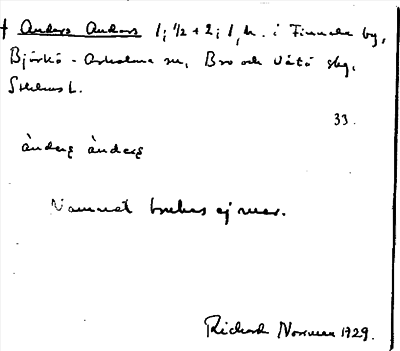 † Anders Anders 1; 1/2 + 2; 1, h. i Finnala by,
Björkö-Arholma sn, Bro och Vätö skg,
Sthlms l.
33.
ànderş ànderş
Namnet brukas ej mer.
Richard Norman 1929.